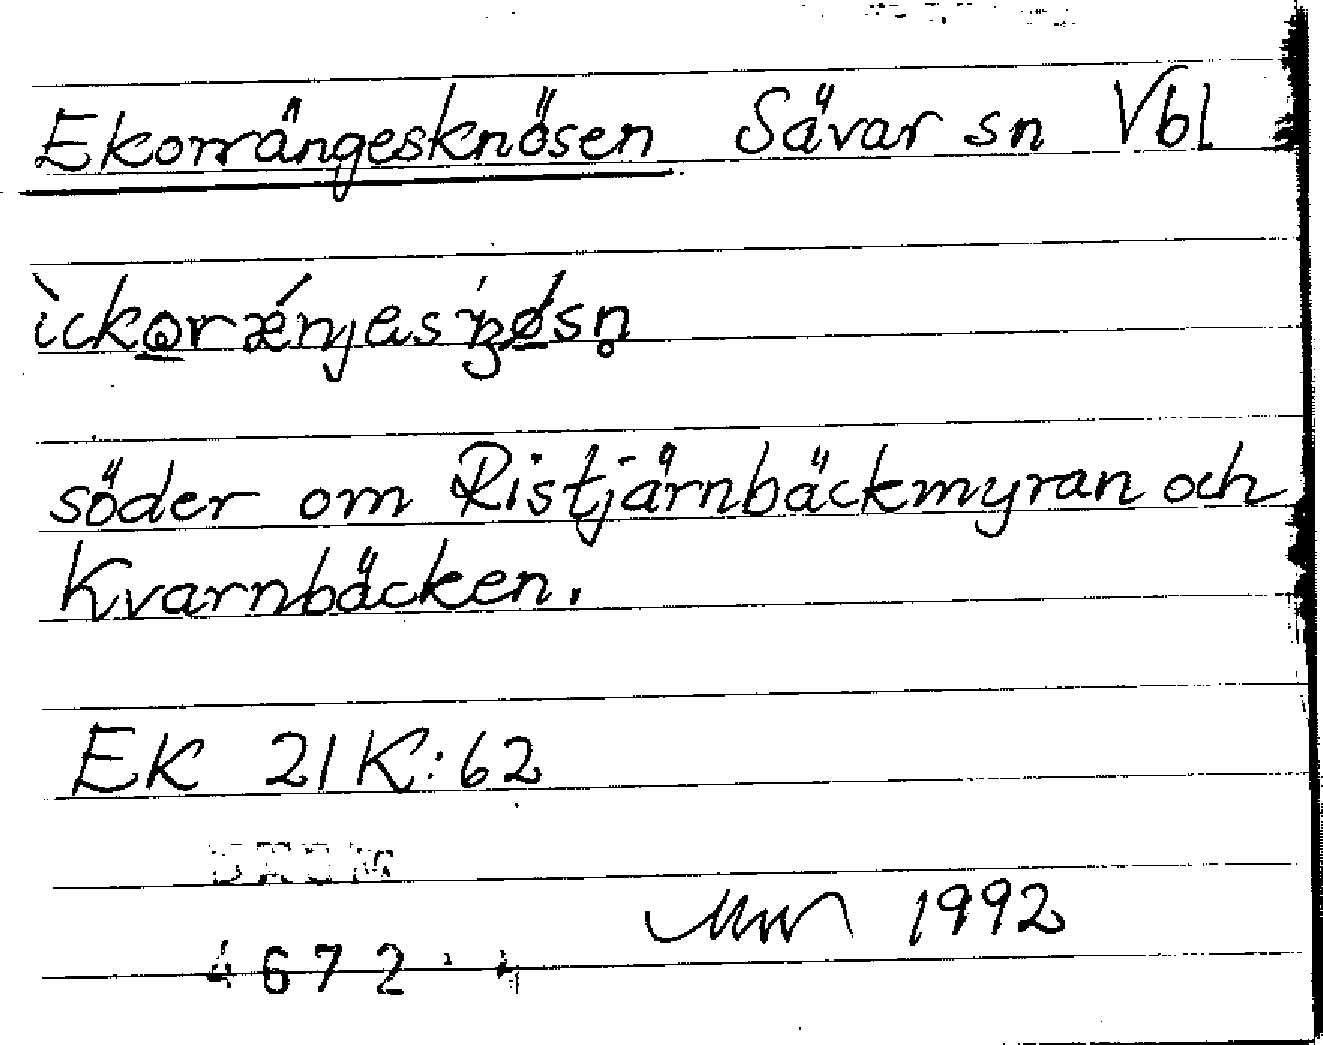 Ekorrängesknösen Sävar sn Vbl
söder om Ristjärnbäckmyran och
Kvarnbäcken.
EK 21K:62
DAUM
1992
4672